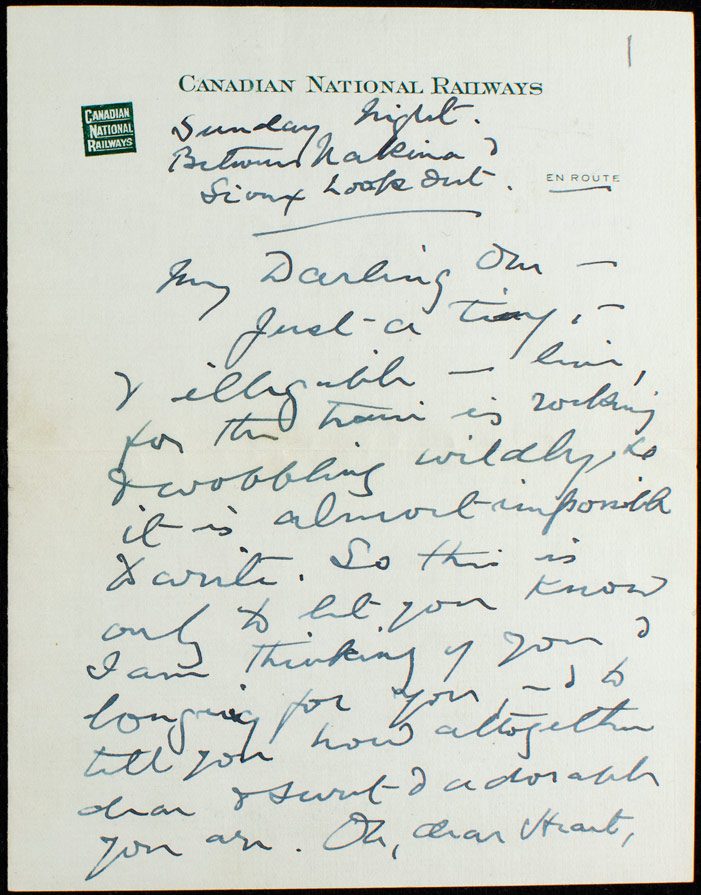 1
CANADIAN NATIONAL RAILWAYS
CANADIAN
NATIONAL
RAILWAYS
Sunday Night.
Between Nakina &
Sioux Lookout.
EN ROUTE
My Darling One —
Just a tiny, —
& illegible — line,
for the train is rocking
& wobbling wildly, so
it is almost impossible
to write. So this is
only to let you know
I am thinking of you &
longing for you, — & to
tell you how altogether
dear & sweet & adorable
you are. Oh, dear Heart,